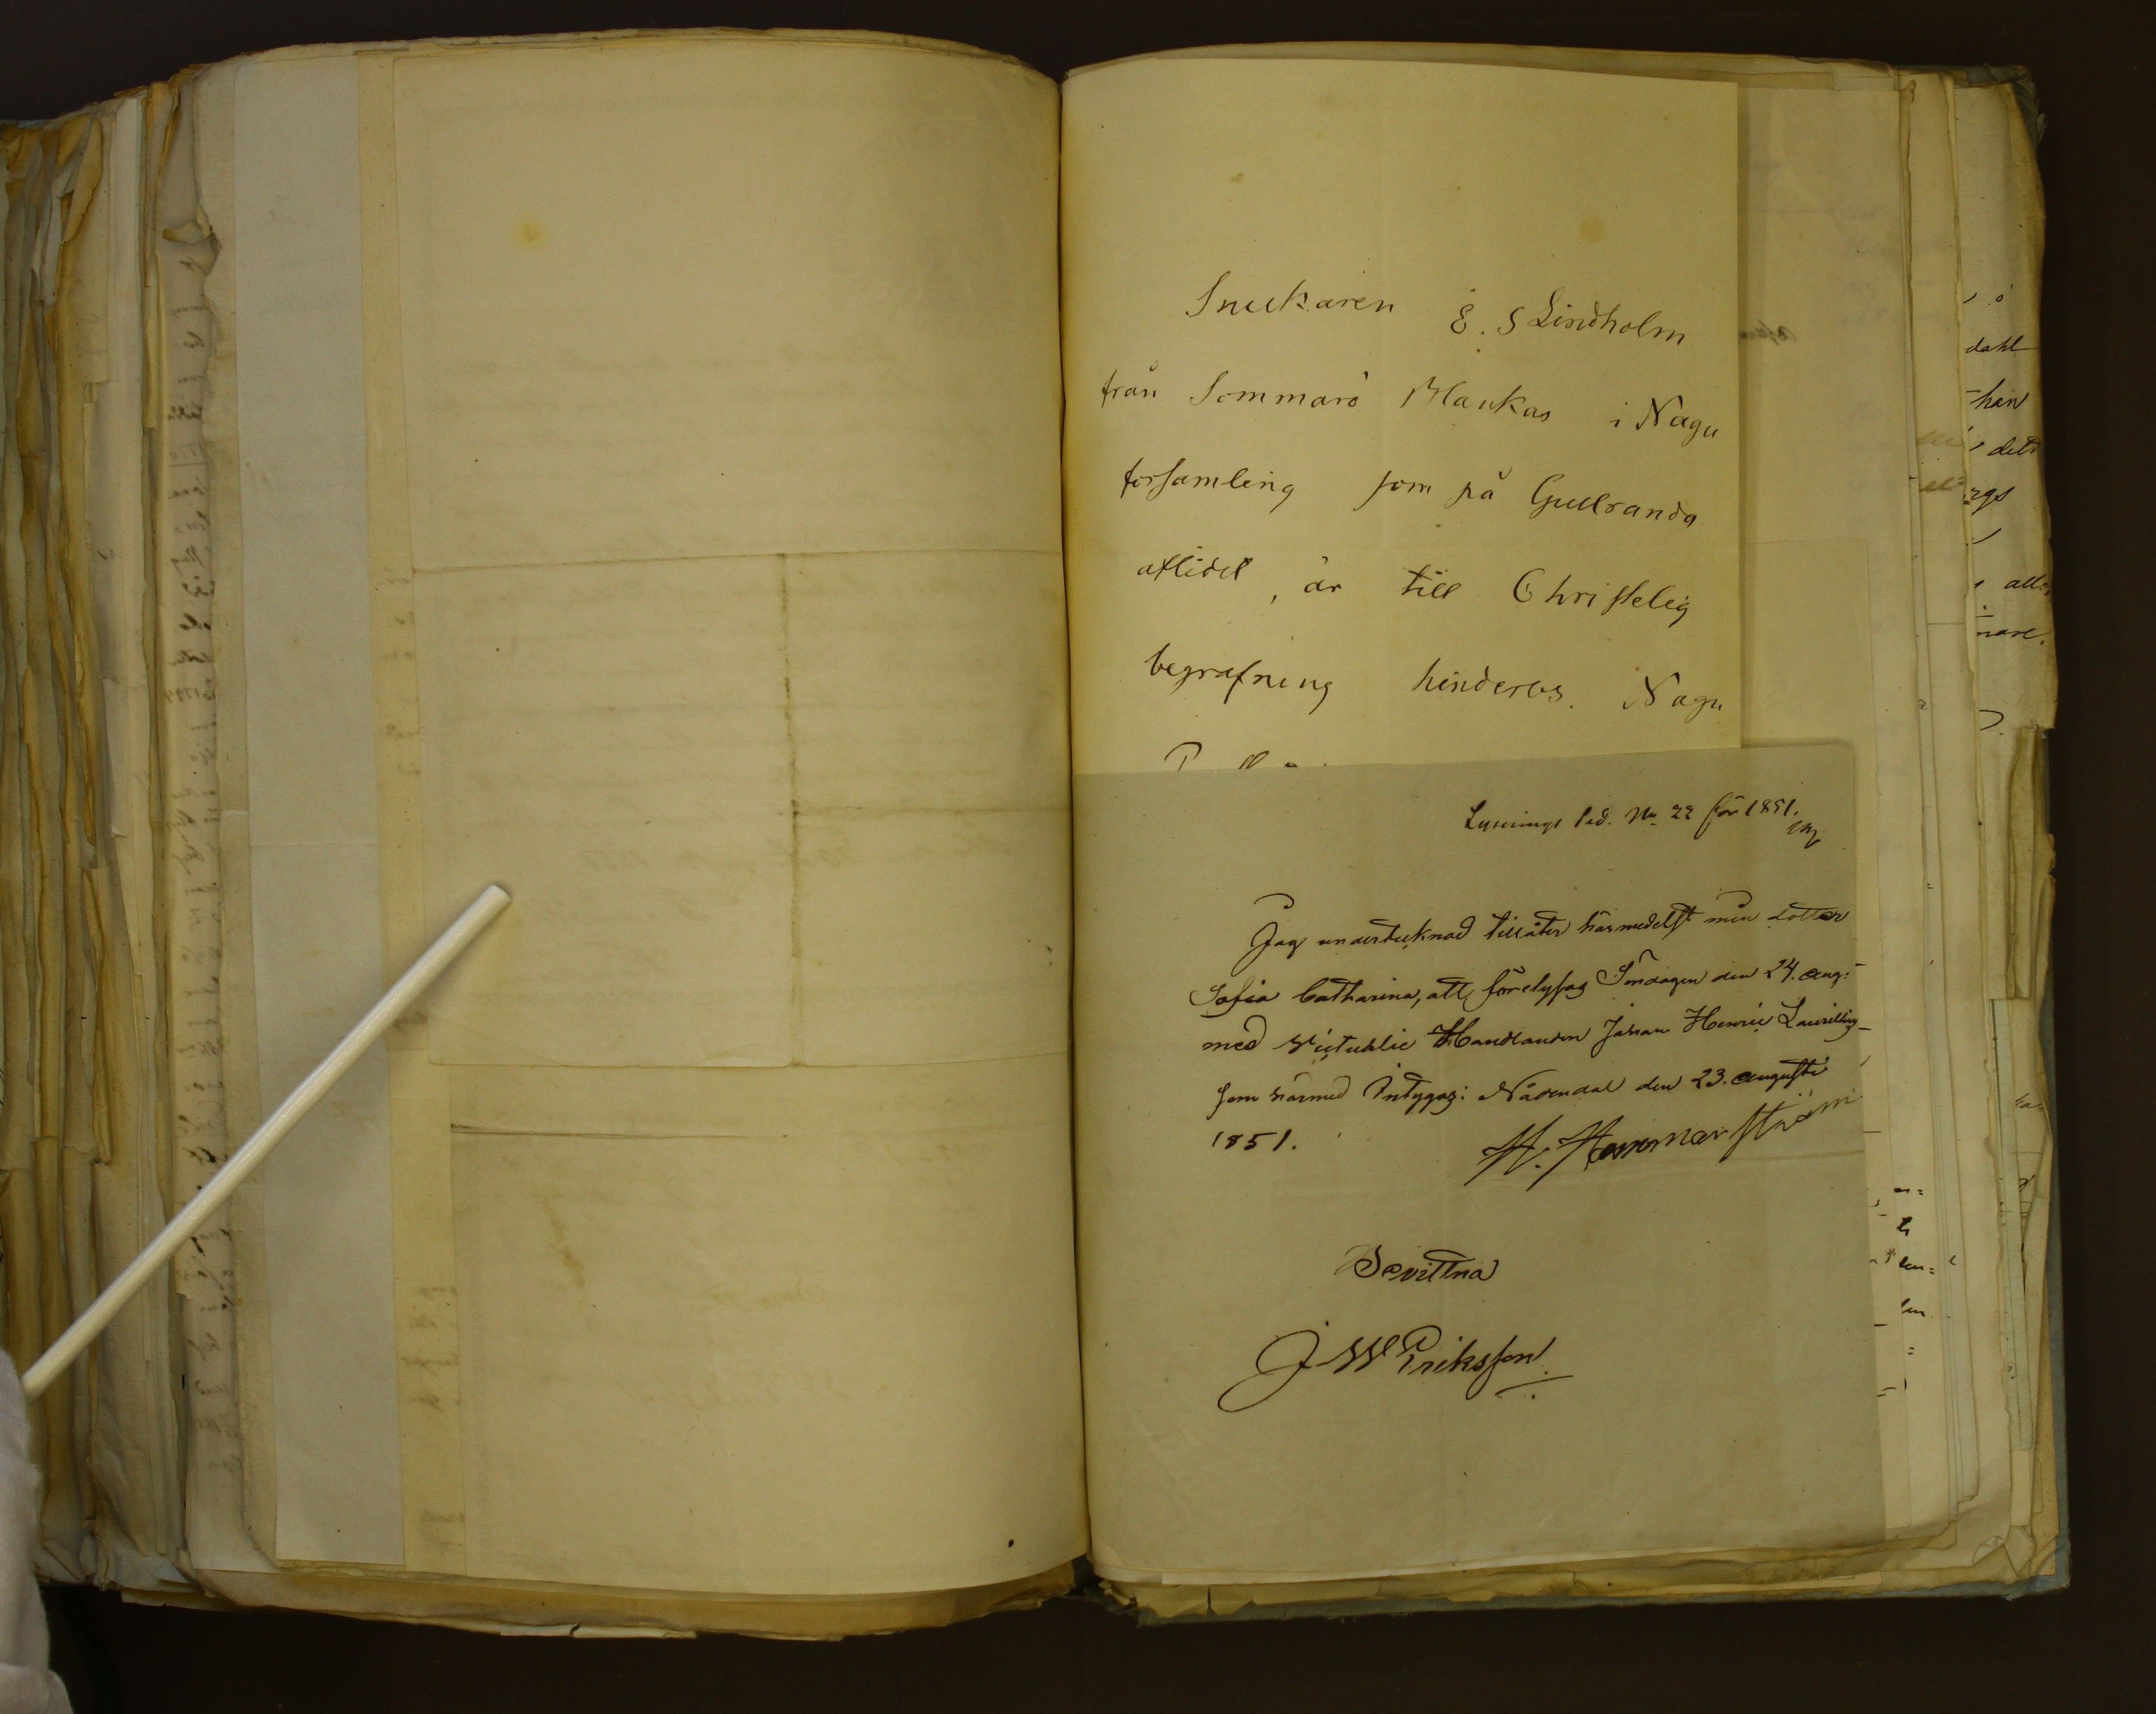 Snickaren E. S Lindholm
från Sommarö Blankas i Nagu
församling som på Gullranda
aflidit, är till Christelig
begrafning hinderlös. Nagu
Lysnings Sed. No 22 för 1851.
Jag undertecknad tillåter härmedelst min dotter
Sofia Catharina, att förelysas Söndagen den 24. Aug:
med Victualie Handlanden Johan Henric
som härmed Intygas: Nådendal den 23. Augusti
1851. H. Hammarström
Bevittna
J W Eriksson
dahl
han
det
rgs
all
nare.